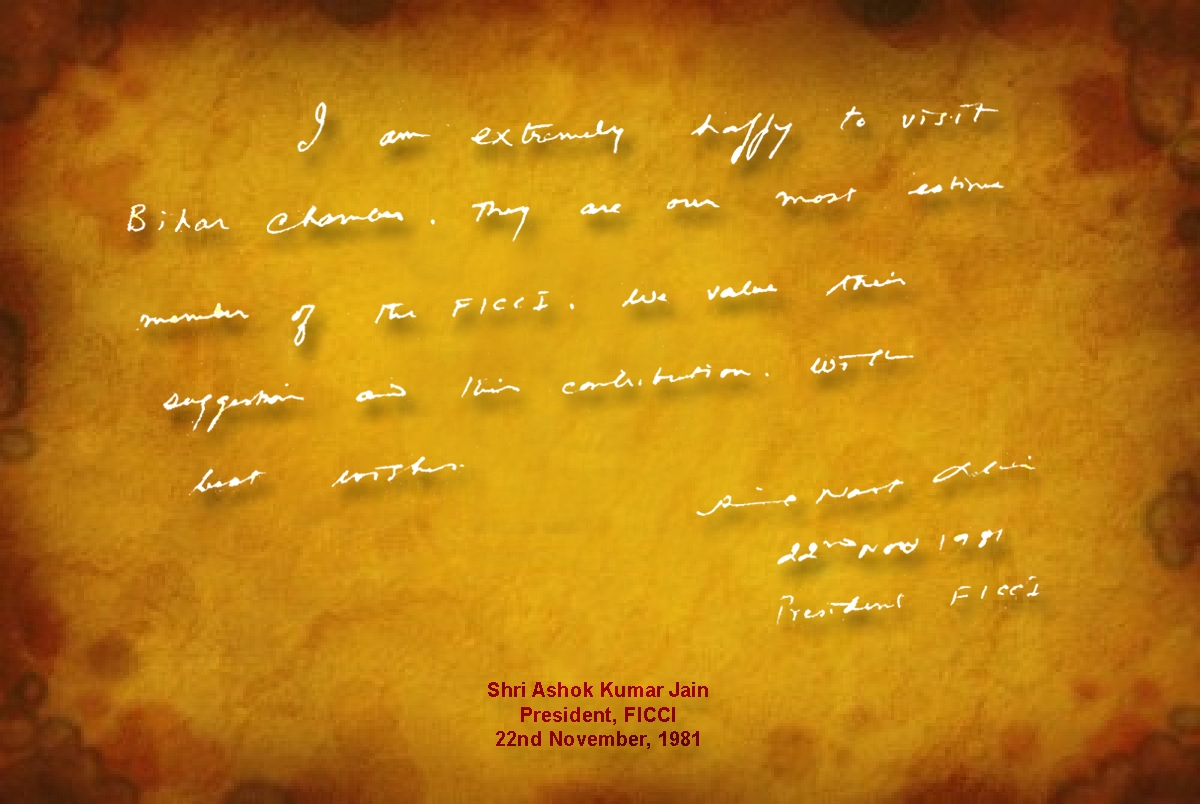 I am extremely happy to visit
Bihar Chamber. They are our most active
member of the FICCI. We value their
suggestion and their contribution. With
best wishes.
22nd Nov 1981
President FICCI
Shri Ashok Kumar Jain
President, FICCI
22nd November, 1981